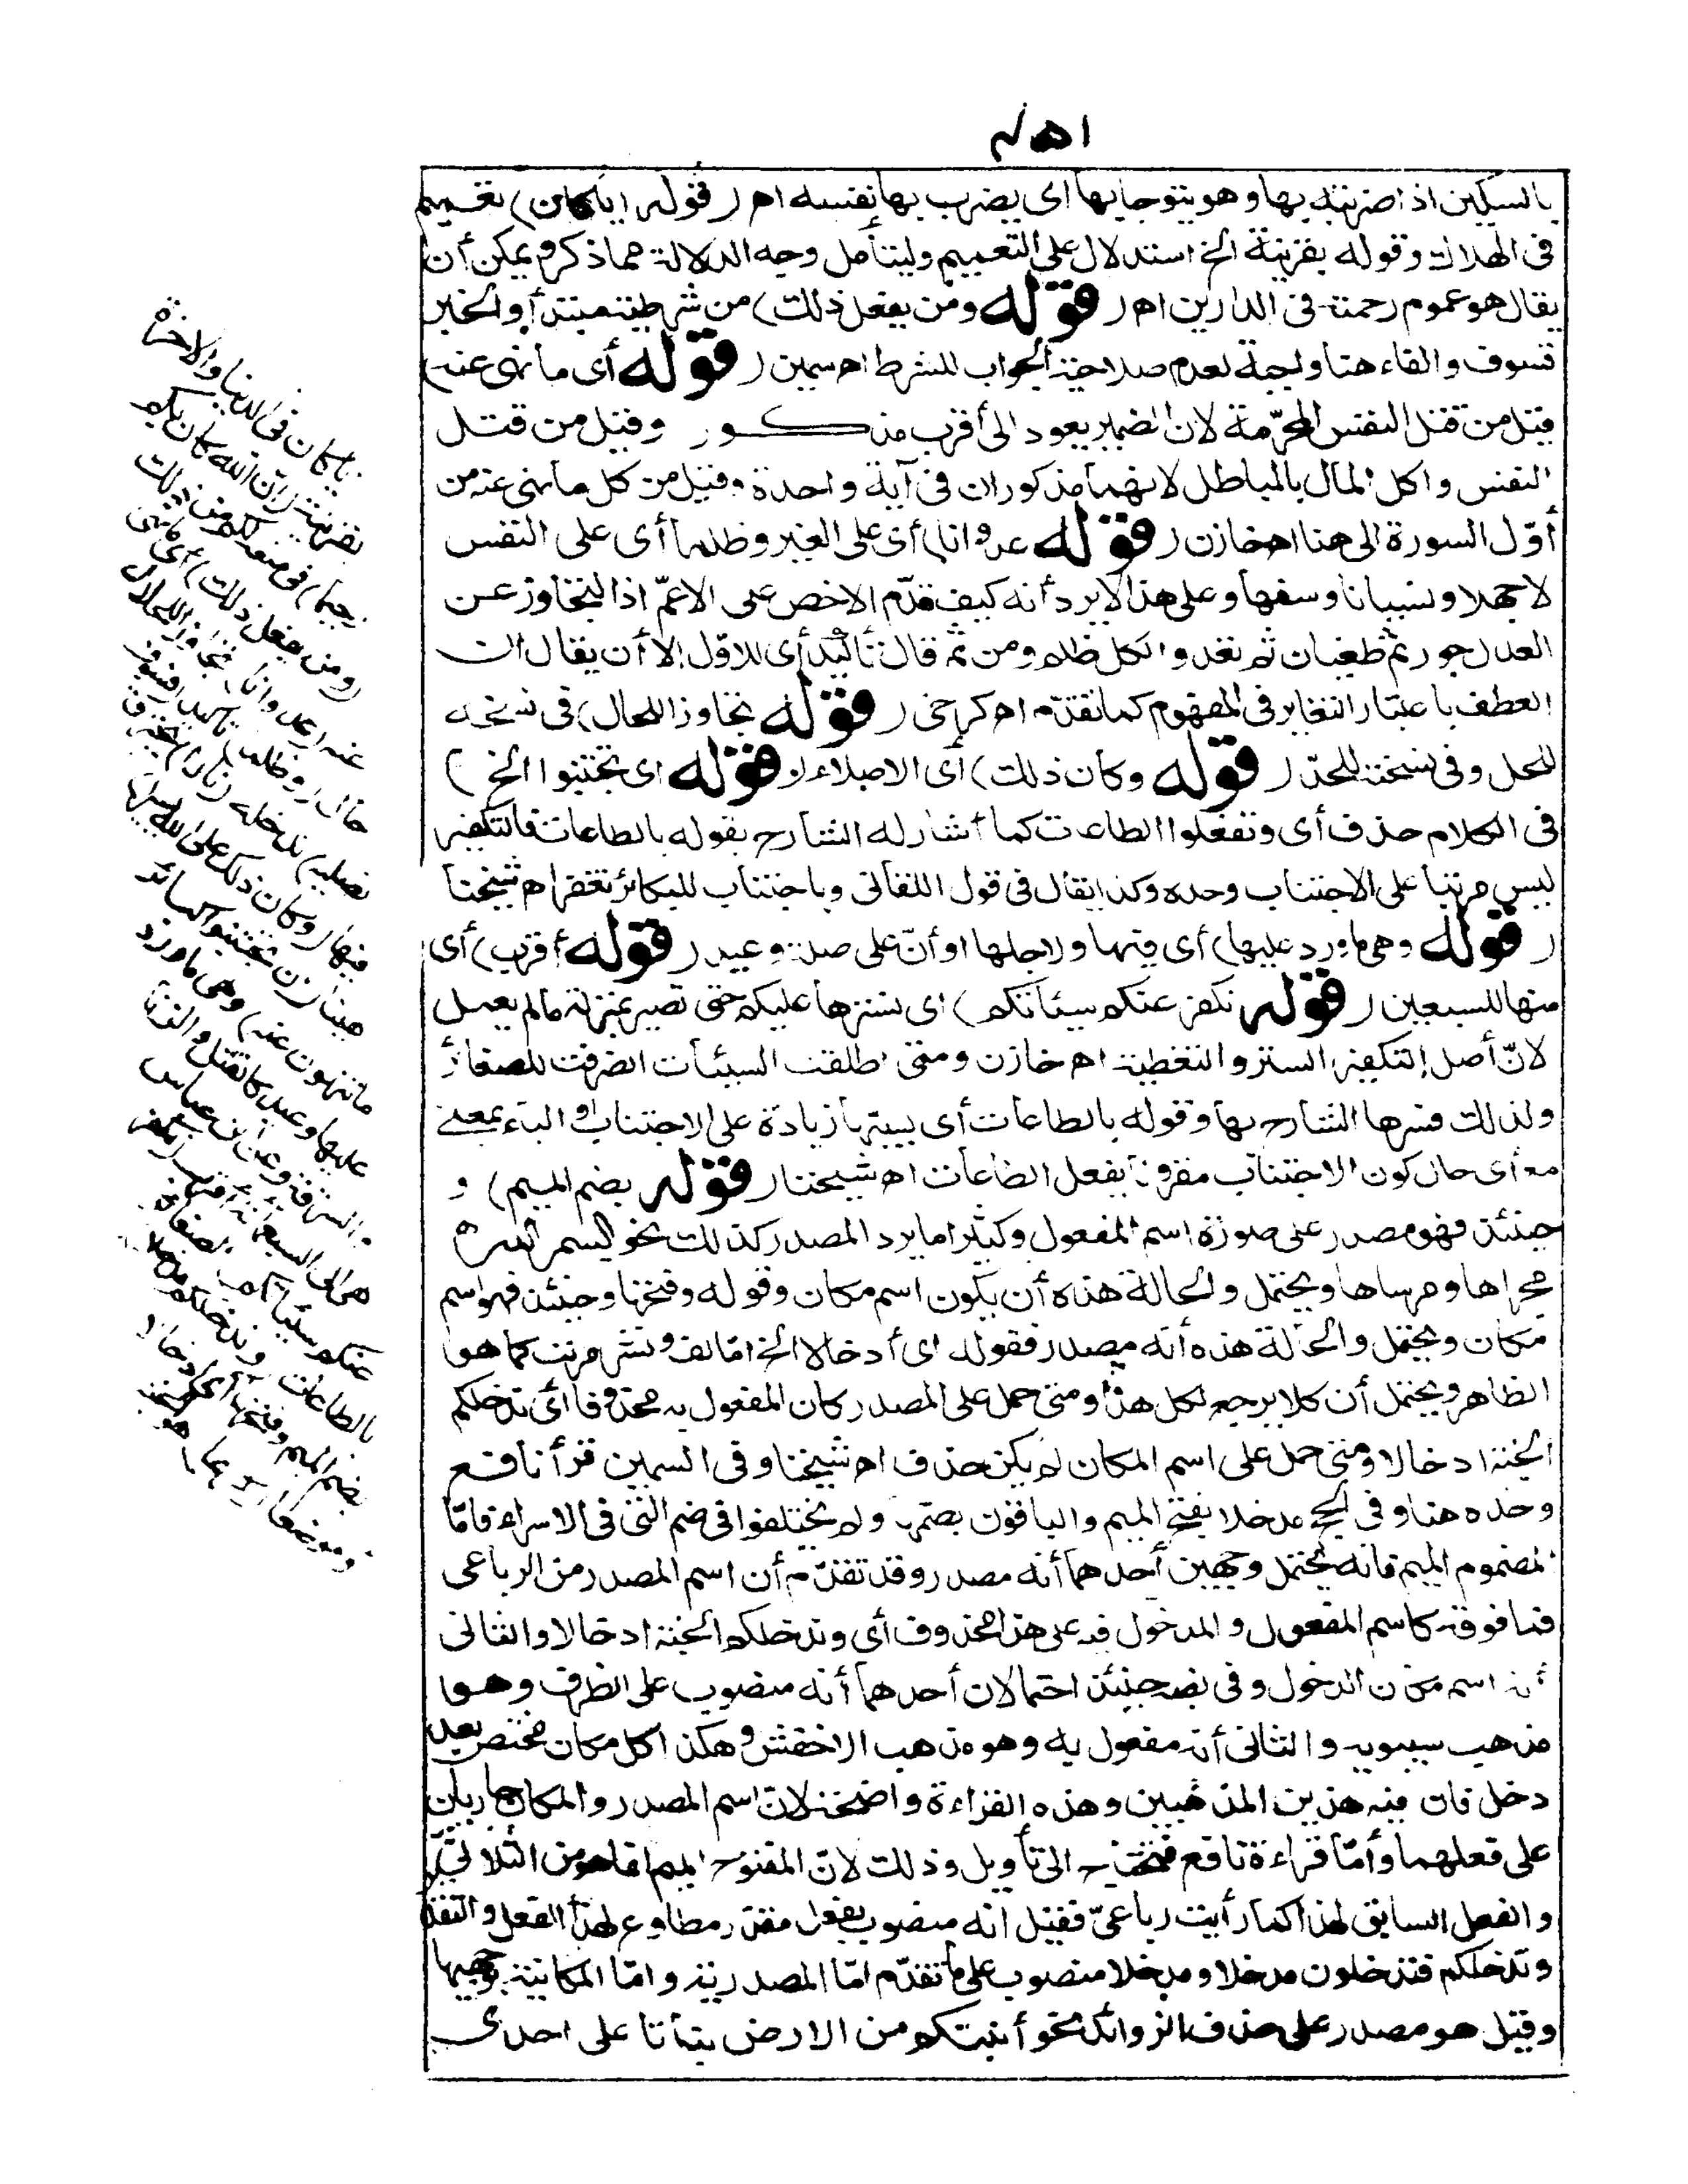 بالسكين اذا ضربته بها وهو يتوجا بها اى يضرب بها نفسه اه (قوله اياكان) تعميم
فى الهلاك وقوله بقرينة الخ استدلال على التعميم وليتأمل وجه الدلالة مماذكر ويمكن أن
يقال هو عموم رحمته فى الدارين اه (قوله ومن يفعل ذلك) من شرطية مبتدأ والخبر
فسوف والفاء هنا واجبة لعدم صلاحية الجواب للشرط اه سمين (قوله أى ما نهى عنه)
قيل من قتل النفس المحرّمة لان الضمير يعود الى أقرب مذكور وقيل من قتل
النفس واكل المال بالباطل لانهما مذكوران فى آية واحدة وقيل من كل ما نهى عنه من
أوّل السورة الى هنا اه خازن (قوله عدوانا) أى على الغير وظلما أى على النفس
لا جهلا ونسيانا وسفها وعلى هذا لا يرد أنه كيف قدّم الاخص على الاعمّ اذ التجاوز عن
العدل جور ثم طغيان ثم تعد والكل ظلم ومن ثم قال تأكيد أى للاوّل الا أن يقال ان
العطف باعتبار التغاير فى المفهوم كما تقدّم اه كرخى (قوله تجاوز اللحال) فى نسخة
للحل وفى نسخة للحدّ (قوله وكان ذلك) أى الاصلاء (قوله اى تجتنبوا الخ)
فى الكلام حذف أى وتفعلوا الطاعات كما أشار له الشارح بقوله بالطاعات فالتكفير
ليس مرتبا على الاجتناب وحده وكذا يقال فى قول اللقانى وباجتناب للكبائر تغفر اه شيخنا
(قوله وهى ما ورد عليها) أى فيها ولاجلها او أنّ على صلة وعيد (قوله أقرب) أى
منها للسبعين (قوله نكفر عنكم سيئاتكم) اى نسترها عليكم حتى تصير بمنزلة ما لم يعمل
لانّ أصل التكفير الستر والتغطية اه خازن ومتى اطلقت السيئات انصرفت للصغائر
ولذلك فسرها الشارح بها وقوله بالطاعات أى بسببها زيادة على الاجتناب او الباء بمعنى
مع أى حال كون الاجتناب مقرونا بفعل الطاعات اه شيخنا (قوله بضم الميم) و
حينئذ فهو مصدر على صورة اسم المفعول وكثيرا ما يرد المصدر كذلك نحو بسم الله
مجراها ومرساها ويحتمل والحالة هذه أن يكون اسم مكان وقوله وفتحها وحينئذ فهو اسم
مكان ويحتمل والحالة هذه أنه مصدر فقوله اى أدخالا الخ امّا لف ونشر مرتب كما هو
الظاهر ويحتمل أن كلا يرجع لكل هذا ومتى حمل على المصدر كان المفعول به محذوفا أى ندخلكم
الجنة ادخالا ومتى حمل على اسم المكان لم يكن حذف اه شيخنا وفى السمين قرأ نافع
وحده هنا وفى الحج مدخلا بفتح الميم والباقون بضمها ولم يختلفوا فى ضم التى فى الاسراء فامّا
المضموم الميم فانه يحتمل وجهين أحدهما أنه مصدر وقد تقدّم أن اسم المصدر من الرباعى
فما فوقه كاسم المفعول والمدخول فيه على هذا محذوف أى وندخلكم الجنة ادخالا والثانى
أنه اسم مكان الدخول وفى نصبه حينئذ احتمالان أحدهما أنه منصوب على الظرف وهو
مذهب سيبويه والثانى أنه مفعول به وهو مذهب الاخفش وهكذا كل مكان مختص بعد
دخل فان فيه هذين المذهبين وهذه القراءة واضحة لانّ اسم المصدر والمكان جاريان
على فعلهما وأمّا قراءة نافع فتحتاج الى تأويل وذلك لانّ المفتوح الميم انما هو من الثلاثى
والفعل السابق لهذا كما رأيت رباعىّ فقيل انه منصوب بفعل مقدّر مطاوع لهذا الفعل والتقدير
وندخلكم فتدخلون مدخلا ومدخلا منصوب على ما تقدّم امّا المصدرية وامّا المكانية بوجهيها
وقيل هو مصدر على حذف الزوائد نحو أنبتكم من الارض نباتا على احدى
اياكان فى الدنيا والاخرة
بقرينة (ان الله كان بكم
رحيما) فى منعه لكم من ذلك
(ومن يفعل ذلك) أى ما نهى
عنه (عدوانا) تجاوز اللحلال
حال (وظلما) تأكيد (فسوف
نصليه) ندخله (نارا) يحترق
فيها (وكان ذلك على الله يسيرا)
هينا (ان تجتنبوا كبائر
ما تنهون عنه) وهى ما ورد
عليها وعيد كالقتل والزنا
والسرقة وعن ابن عباس
هى الى السبعمائة أقرب (نكفر
عنكم سيئاتكم) الصغائر
بالطاعات (وندخلكم مدخلا)
بضم الميم وفتحها أى ادخالا
وموضعا (كريما) هو الجنة